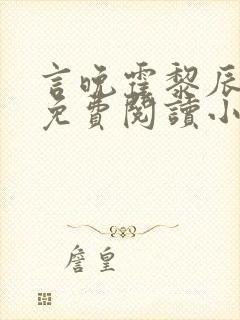 言晚霏黎辰
免費閱讀小
詹皇